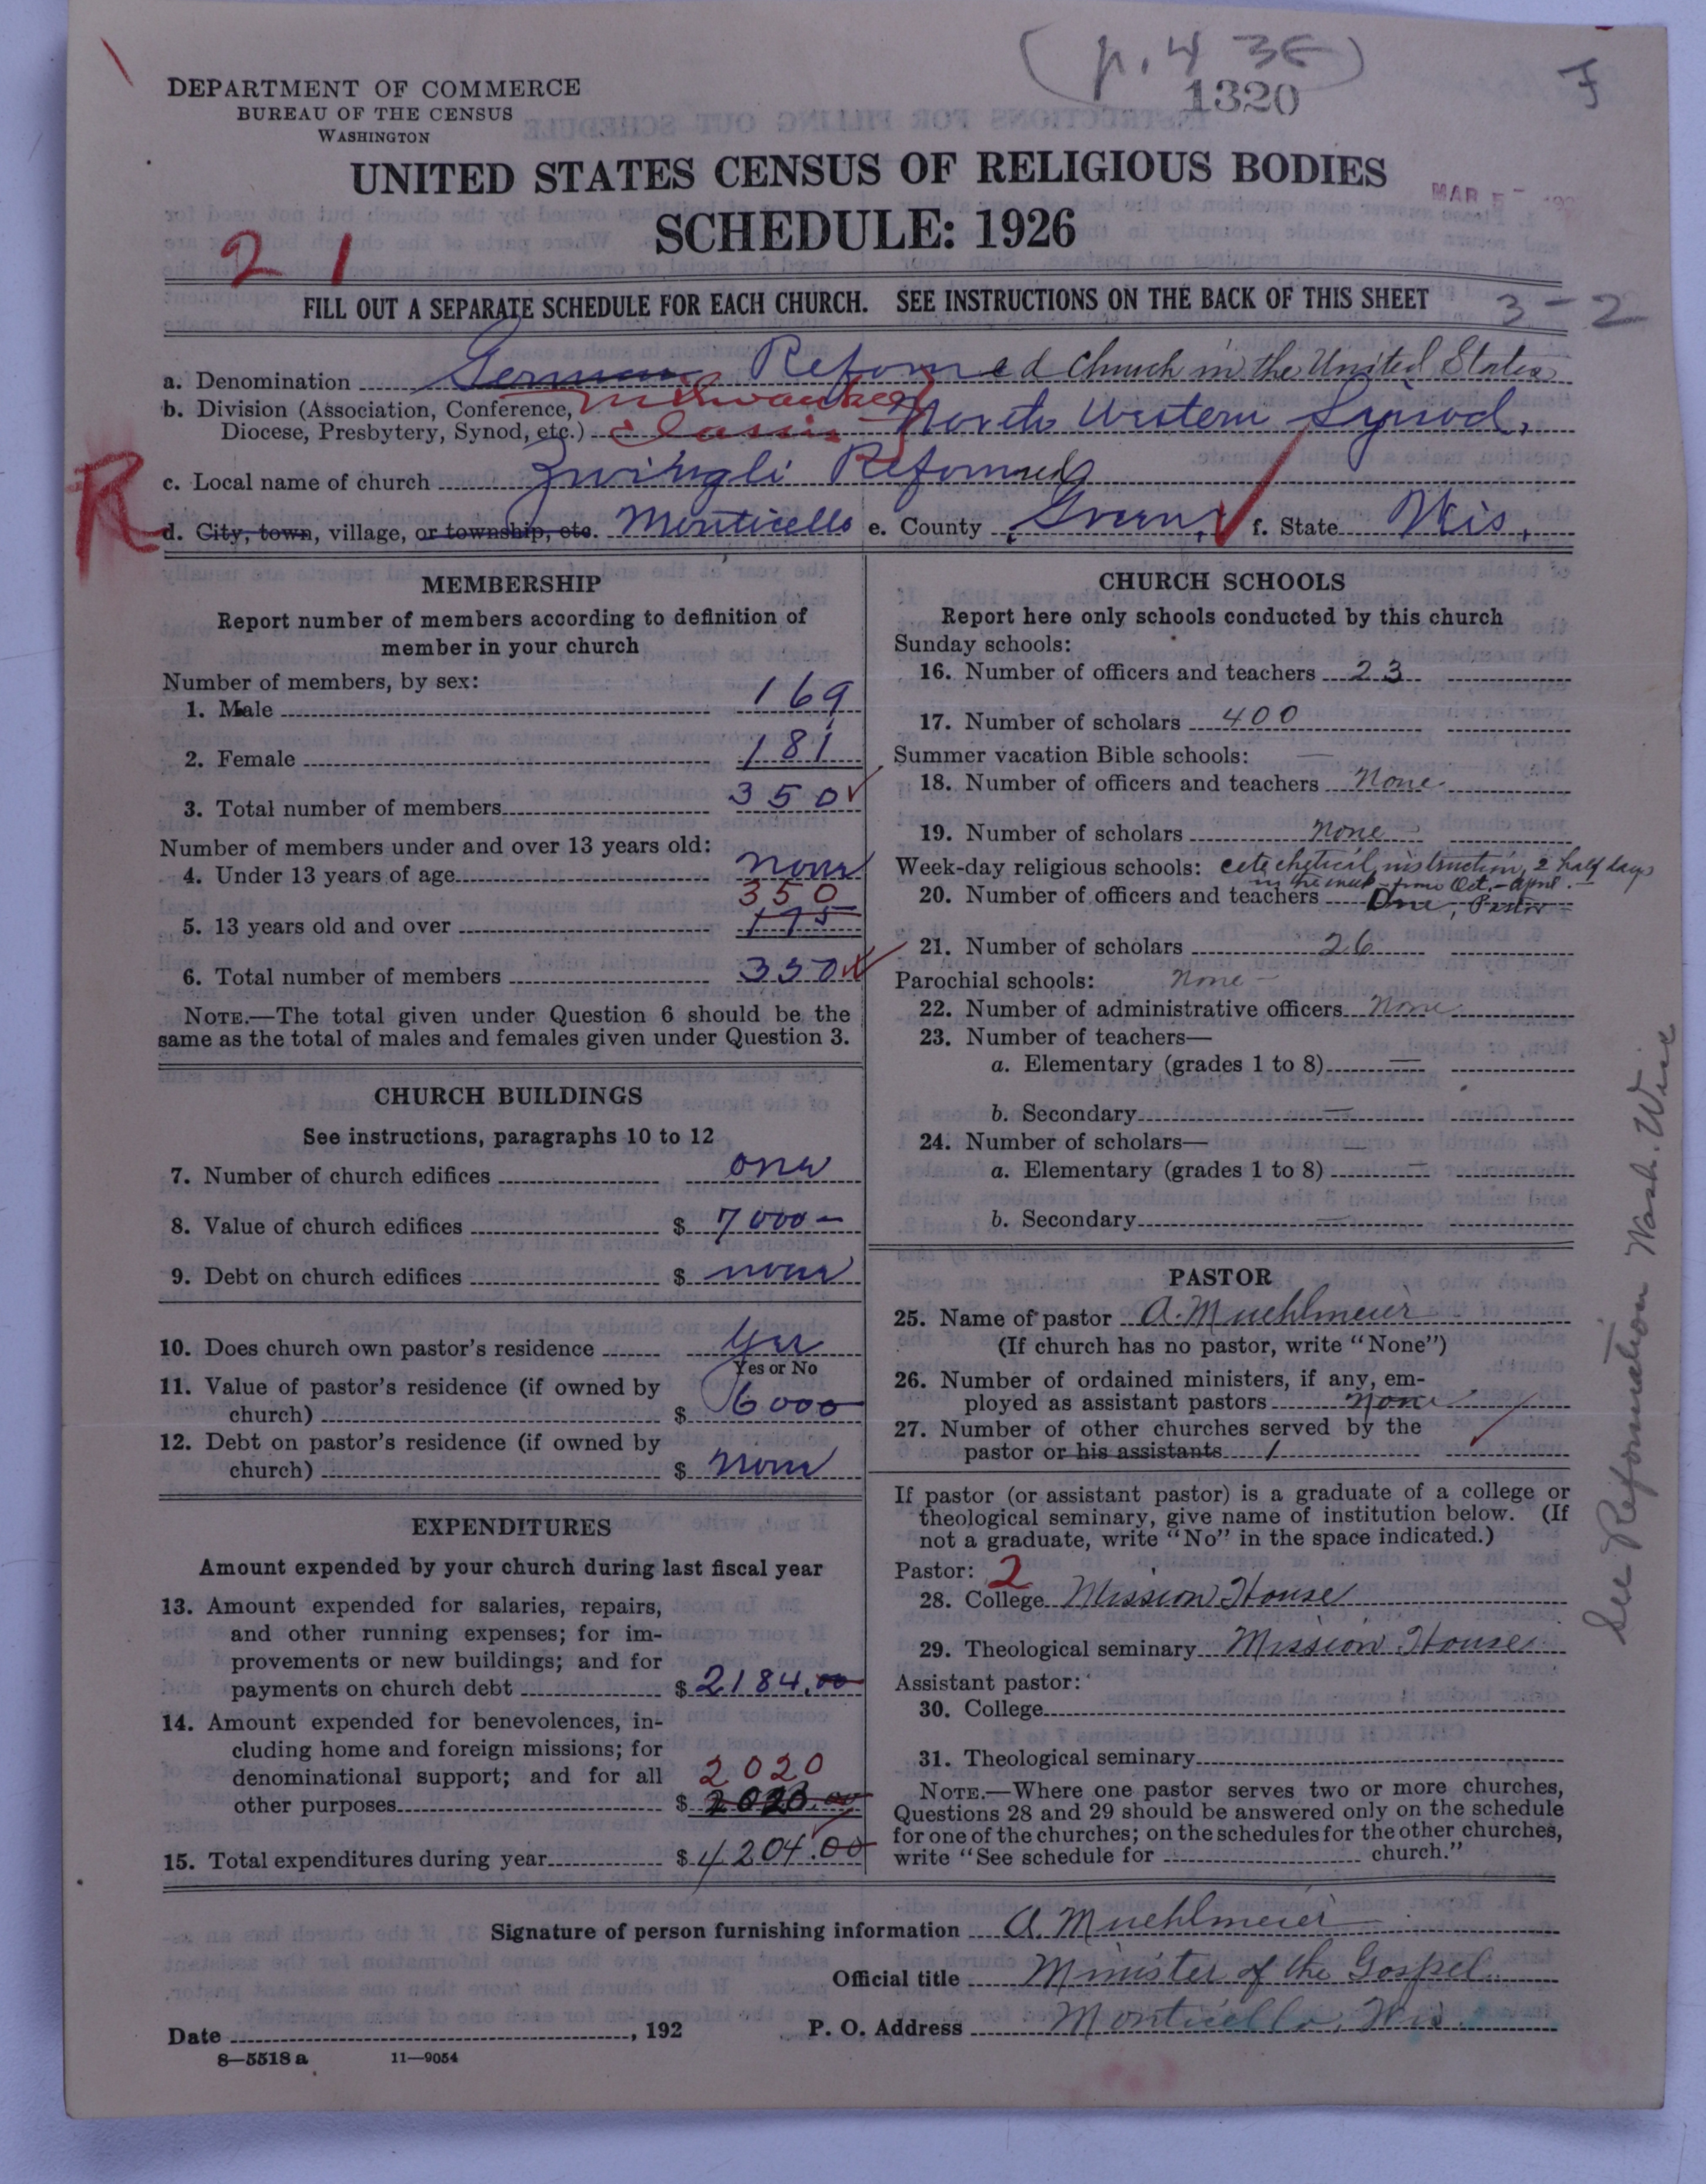 (p. 4 36)
1320
F
DEPARTMENT OF COMMERCE
BUREAU OF THE CENSUS
WASHINGTON
UNITED STATES CENSUS OF RELIGIOUS BODIES
MAR 5 - 192
SCHEDULE: 1926
2 1
FILL OUT A SEPARATE SCHEDULE FOR EACH CHURCH. SEE INSTRUCTIONS ON THE BACK OF THIS SHEET
3-2
a. Denomination German Reformed Church in the United States
b. Division (Association, Conference, Milwaukee
Diocese, Presbytery, Synod, etc.) Classis North Western Synod,
R
c. Local name of church Zwingli Reformed
d. City, town, village, or township, etc. Monticello e. County Green, f. State Wis,
MEMBERSHIP
Report number of members according to definition of
member in your church
Number of members, by sex:
1. Male 169
2. Female 181
3. Total number of members 350
Number of members under and over 13 years old:
4. Under 13 years of age none
350
5. 13 years old and over 175
6. Total number of members 350
NOTE.—The total given under Question 6 should be the
same as the total of males and females given under Question 3.
CHURCH BUILDINGS
See instructions, paragraphs 10 to 12
7. Number of church edifices one
8. Value of church edifices $ 7000—
9. Debt on church edifices $ none
10. Does church own pastor's residence Yes
Yes or No
11. Value of pastor's residence (if owned by
church) $ 6000
12. Debt on pastor's residence (if owned by
church) $ none
EXPENDITURES
Amount expended by your church during last fiscal year
13. Amount expended for salaries, repairs,
and other running expenses; for im-
provements or new buildings; and for
payments on church debt $ 2184.00
14. Amount expended for benevolences, in-
cluding home and foreign missions; for
denominational support; and for all 2020
other purposes $ 2020.00
15. Total expenditures during year $ 4204.00
CHURCH SCHOOLS
Report here only schools conducted by this church
Sunday schools:
16. Number of officers and teachers 23
17. Number of scholars 400
Summer vacation Bible schools:
18. Number of officers and teachers None
19. Number of scholars None
Week-day religious schools: catechetical instruction, 2 half days
in the week from Oct.-April.
20. Number of officers and teachers One, Pastor
21. Number of scholars 26
Parochial schools: None
22. Number of administrative officers None
23. Number of teachers—
a. Elementary (grades 1 to 8) —
b. Secondary —
24. Number of scholars—
a. Elementary (grades 1 to 8) —
b. Secondary —
PASTOR
25. Name of pastor A. Muehlmeier
(If church has no pastor, write "None")
26. Number of ordained ministers, if any, em-
ployed as assistant pastors None
27. Number of other churches served by the
pastor or his assistants 1
If pastor (or assistant pastor) is a graduate of a college or
theological seminary, give name of institution below. (If
not a graduate, write "No" in the space indicated.)
Pastor: 2
28. College Mission House
29. Theological seminary Mission House
Assistant pastor:
30. College
31. Theological seminary
NOTE.—Where one pastor serves two or more churches,
Questions 28 and 29 should be answered only on the schedule
for one of the churches; on the schedules for the other churches,
write "See schedule for church."
See Reformation Wash. Wisc
Signature of person furnishing information A. Muehlmeier
Official title Minister of the Gospel
Date , 192 P. O. Address Monticello, Wis.
8—5518 a 11—9054